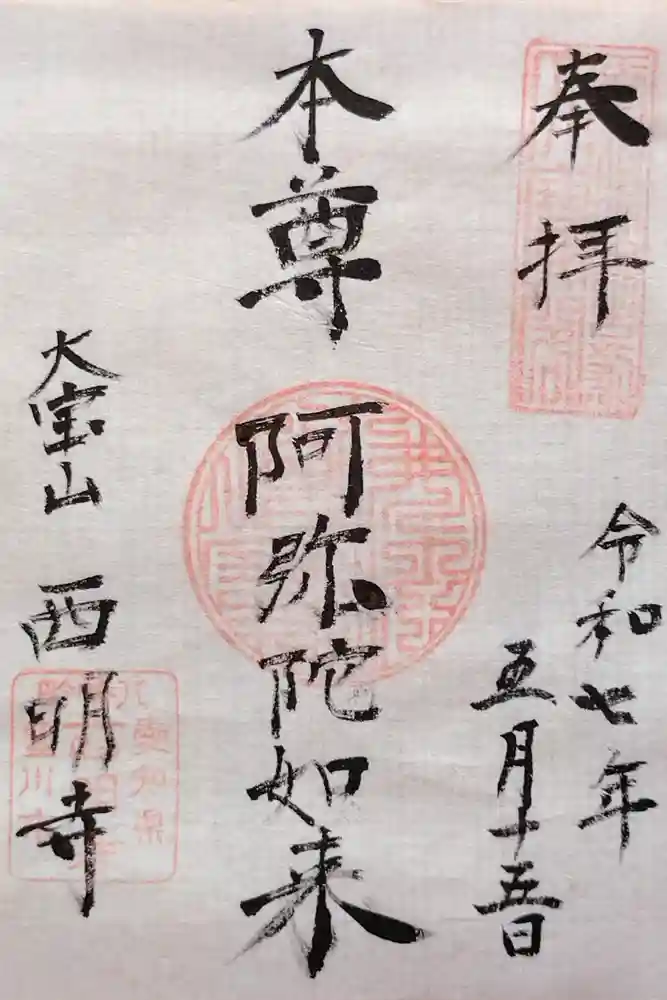 奉拝
令和七年
五月十五日
本尊
阿弥陀如来
大宝山 西明寺
愛知県
豊川市